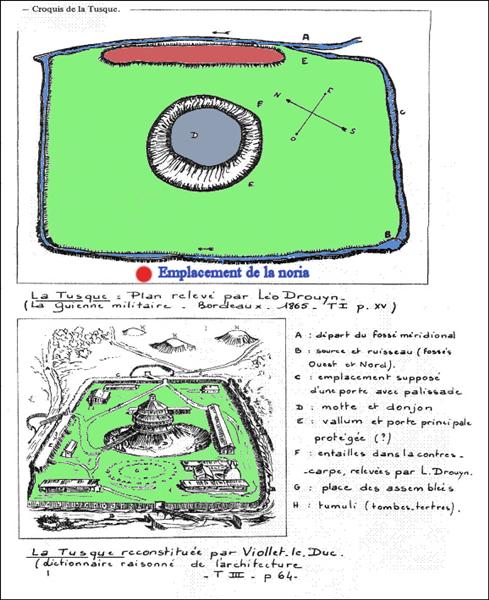 — Croquis de la Tusque.
A
E
C
N
E
O
S
F
D
E
B
Emplacement de la noria
La Tusque : Plan relevé par Léo Drouyn.
(La Guienne militaire - Bordeaux - 1865 - T I p. XV)
A : départ du fossé méridional
B : source et ruisseau (fossés
Ouest et Nord).
C : emplacement supposé
d'une porte avec palissade
D : motte et donjon
E : vallum et porte principale
protégée (?)
F : entailles dans la contres-
-carpe, relevées par L. Drouyn.
G : place des assemblées
H : tumuli (tombes-tertres).
La Tusque reconstituée par Viollet.le.Duc.
(dictionnaire raisonné de l'architecture
- T III - p 64-